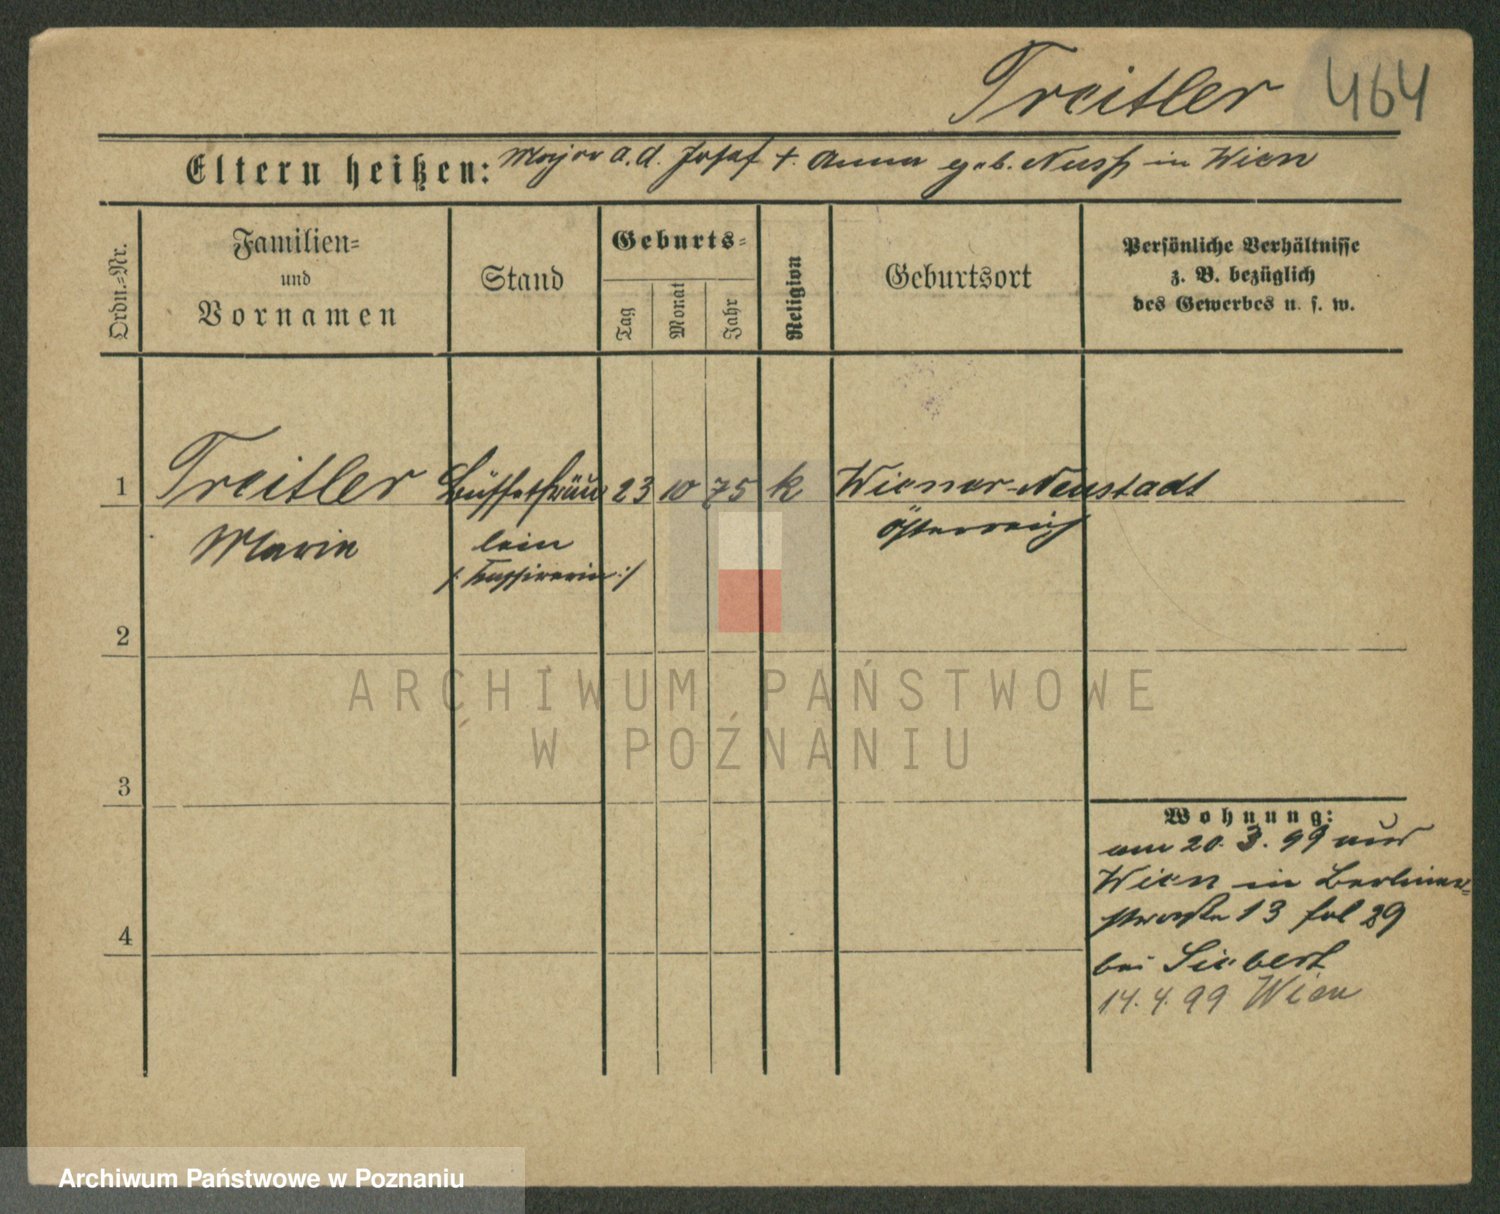 Treitler 464
Eltern heißen: Major a. d. Josef + Anna geb. in Wien
Ordn.=Nr.
Familien=
und
Vornamen
Stand
Geburts=
Tag
Monat
Jahr
Religion
Geburtsort
Persönliche Verhältnisse
z. B. bezüglich
des Gewerbes u. s. w.
1 Treitler Büffetfräu 23 10 75 k Wiener-Neustadt
Marie lein Österreich
/: Kassirerin :/
2
3
4
Wohnung:
am 20. 3. 99 aus
Wien in Berliner=
straße 13 fol 29
bei Siebert
14. 4. 99 Wien
ARCHIWUM PAŃSTWOWE
W POZNANIU
Archiwum Państwowe w Poznaniu